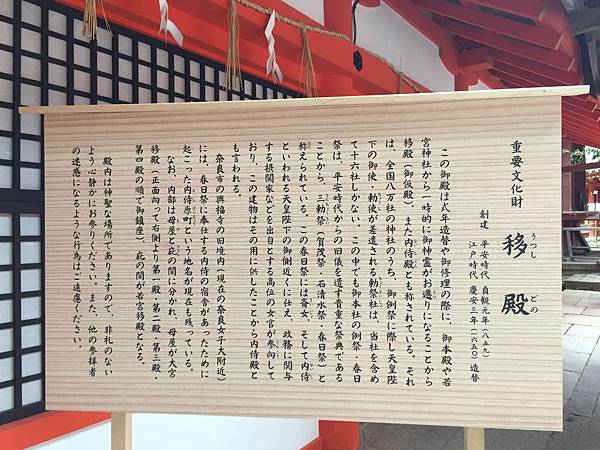 重要文化財
移殿
うつし どの
創建 平安時代 貞観元年(八五九)
江戸時代 慶安三年(一六五〇) 造替
この御殿は式年造替や御修理の際に、御本殿や若
宮神社から一時的に御神霊がお遷りになることから
移殿(御仮殿)、また内侍殿とも称されている。それ
は、全国八万社の神社のうち、御例祭に際し天皇陛
下の御使・勅使が差遣される勅祭社は、当社を含め
て十六社しかない。この中でも御本社の例祭・春日
祭は、平安時代からの旧儀を遺す貴重な祭典である
ことから、三勅祭(賀茂祭・石清水祭・春日祭)と
称えられている。この春日祭には斎女、そして内侍
といわれる天皇陛下の御側近くに仕え、政務に関与
する摂関家などを出自とする高位の女官が参向して
おり、この建物はその用に供したことから内侍殿と
も言われる。
奈良市の興福寺の旧境内(現在の奈良女子大附近)
には、春日祭に奉仕する内侍の宿舎があったために
起こった内侍原町という地名が現在も残っている。
なお、内部は母屋と庇の間に分かれ、母屋が大宮
移殿(正面向って右側より第一殿・第二殿・第三殿・
第四殿の順で御鎮座)、庇の間が若宮移殿となる。
殿内は神聖な場所でありますので、非礼のない
よう心静かにお参りください。また、他の参拝者
の迷惑になるような行為はご遠慮ください。